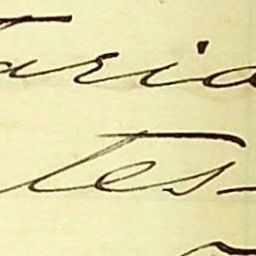 taria
tes-